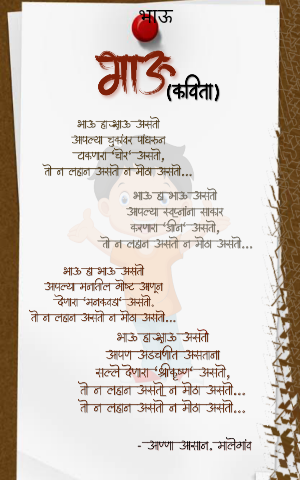 भाऊ
भाऊ
(कविता)
भाऊ हा भाऊ असतो
आपल्या चुकांवर पांघरुन
टाकणारा 'चोर' असतो,
तो न लहान असतो न मोठा असतो...
भाऊ हा भाऊ असतो
आपल्या स्वप्नांना साकार
करणारा 'जीन' असतो,
तो न लहान असतो न मोठा असतो...
भाऊ हा भाऊ असतो
आपल्या मनातील गोष्ट आणून
देणारा 'मनकवडा' असतो.
तो न लहान असतो न मोठा असतो...
भाऊ हा भाऊ असतो
आपण अडचणीत असताना
सल्ले देणारा 'श्रीकृष्ण' असतो,
तो न लहान असतो न मोठा असतो...
तो न लहान असतो न मोठा असतो...
- अण्णा आसान, मालेगांव